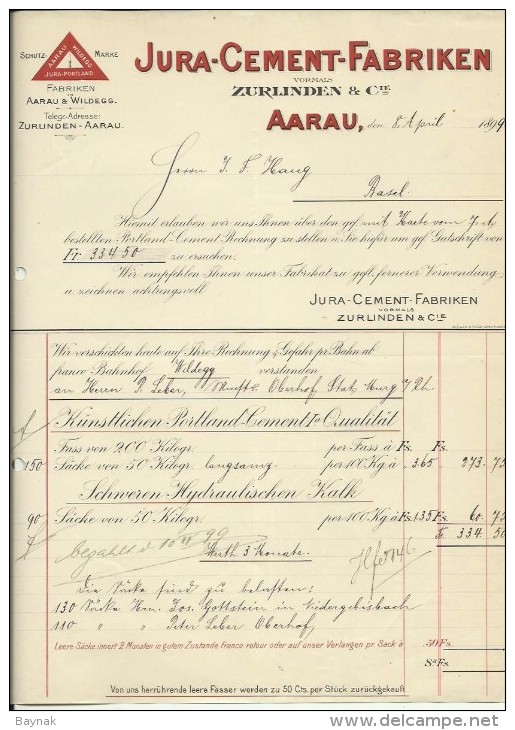 SCHUTZ- MARKE
AARAU WILDEGG
1
JURA-PORTLAND
FABRIKEN
IN
AARAU & WILDEGG.
Telegr.-Adresse:
ZURLINDEN-AARAU.
JURA-CEMENT-FABRIKEN
VORMALS
ZURLINDEN & CIE
AARAU, den 8. April 1899
Herrn J. F. Haug
Basel.
Hiemit erlauben wir uns Ihnen über den ggf. mit Karte vom 7. ct.
bestellten Portland-Cement Rechnung zu stellen u. Sie hiefür um ggf. Gutschrift von
Fr. 334 50 zu ersuchen.
Wir empfehlen Ihnen unser Fabrikat zu gefl. fernerer Verwendung
u. zeichnen achtungsvoll
JURA-CEMENT-FABRIKEN
VORMALS
ZURLINDEN & CIE.
Wir verschickten heute auf Ihre Rechnung & Gefahr pr. Bahn ab
franco Bahnhof Wildegg verstanden
an Herrn P. Leber, Oberhof Stat. Murg
Künstlichen Portland-Cement Ia Qualität
Fass von 200 Kilogr. per Fass à Fs. Fs.
150 Säcke von 50 Kilogr. langsamz. per 100 Kg. à 365 273. 75
Schweren Hydraulischen Kalk
90 Säcke von 50 Kilogr. per 100 Kg. à Fs. 135 Fs. 60. 75
Fr. 334. 50
bezahlt d 10 99
Werth 3 Monate.
Die Säcke sind zu belasten:
130 Säcke Hrn. Jos. Gottstein in Niedergebisbach
110 " " Peter Leber Oberhof
Leere Säcke innert 2 Monaten in gutem Zustande franco retour oder auf unser Verlangen pr. Sack à 50 Fs.
8a Fs.
Von uns herrührende leere Fässer werden zu 50 Cts. per Stück zurückgekauft
Baynak
delcampe.net